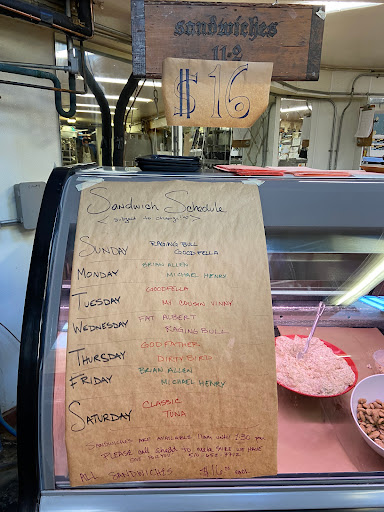 sandwiches
11-2
$16
Sandwich Schedule
Subject to change
SUNDAY RAGING BULL
GOODFELLA
MONDAY BRIAN ALLEN
MICHAEL HENRY
TUESDAY GOODFELLA
MY COUSIN VINNY
WEDNESDAY FAT ALBERT
RAGING BULL
THURSDAY GODFATHER
DIRTY BIRD
FRIDAY BRIAN ALLEN
MICHAEL HENRY
SATURDAY CLASSIC
TUNA
SANDWICHES ARE AVAILABLE 11am until 1:30 pm
PLEASE call ahead to make sure we have
ALL SANDWICHES $16.00 each